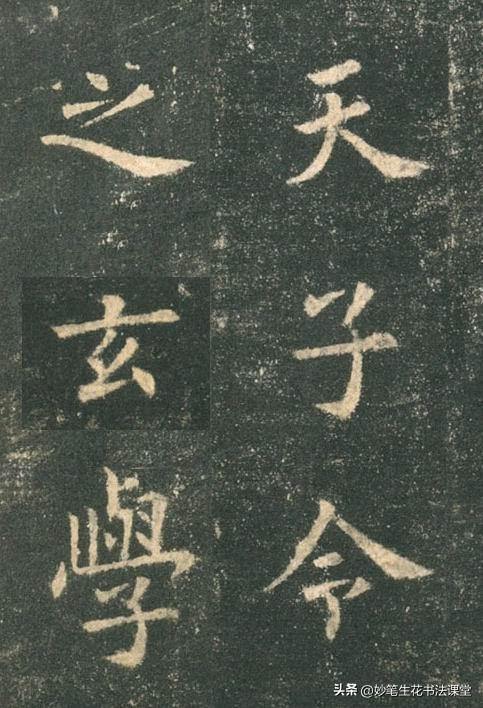 天子令
之玄學
头条 @妙笔生花书法课堂